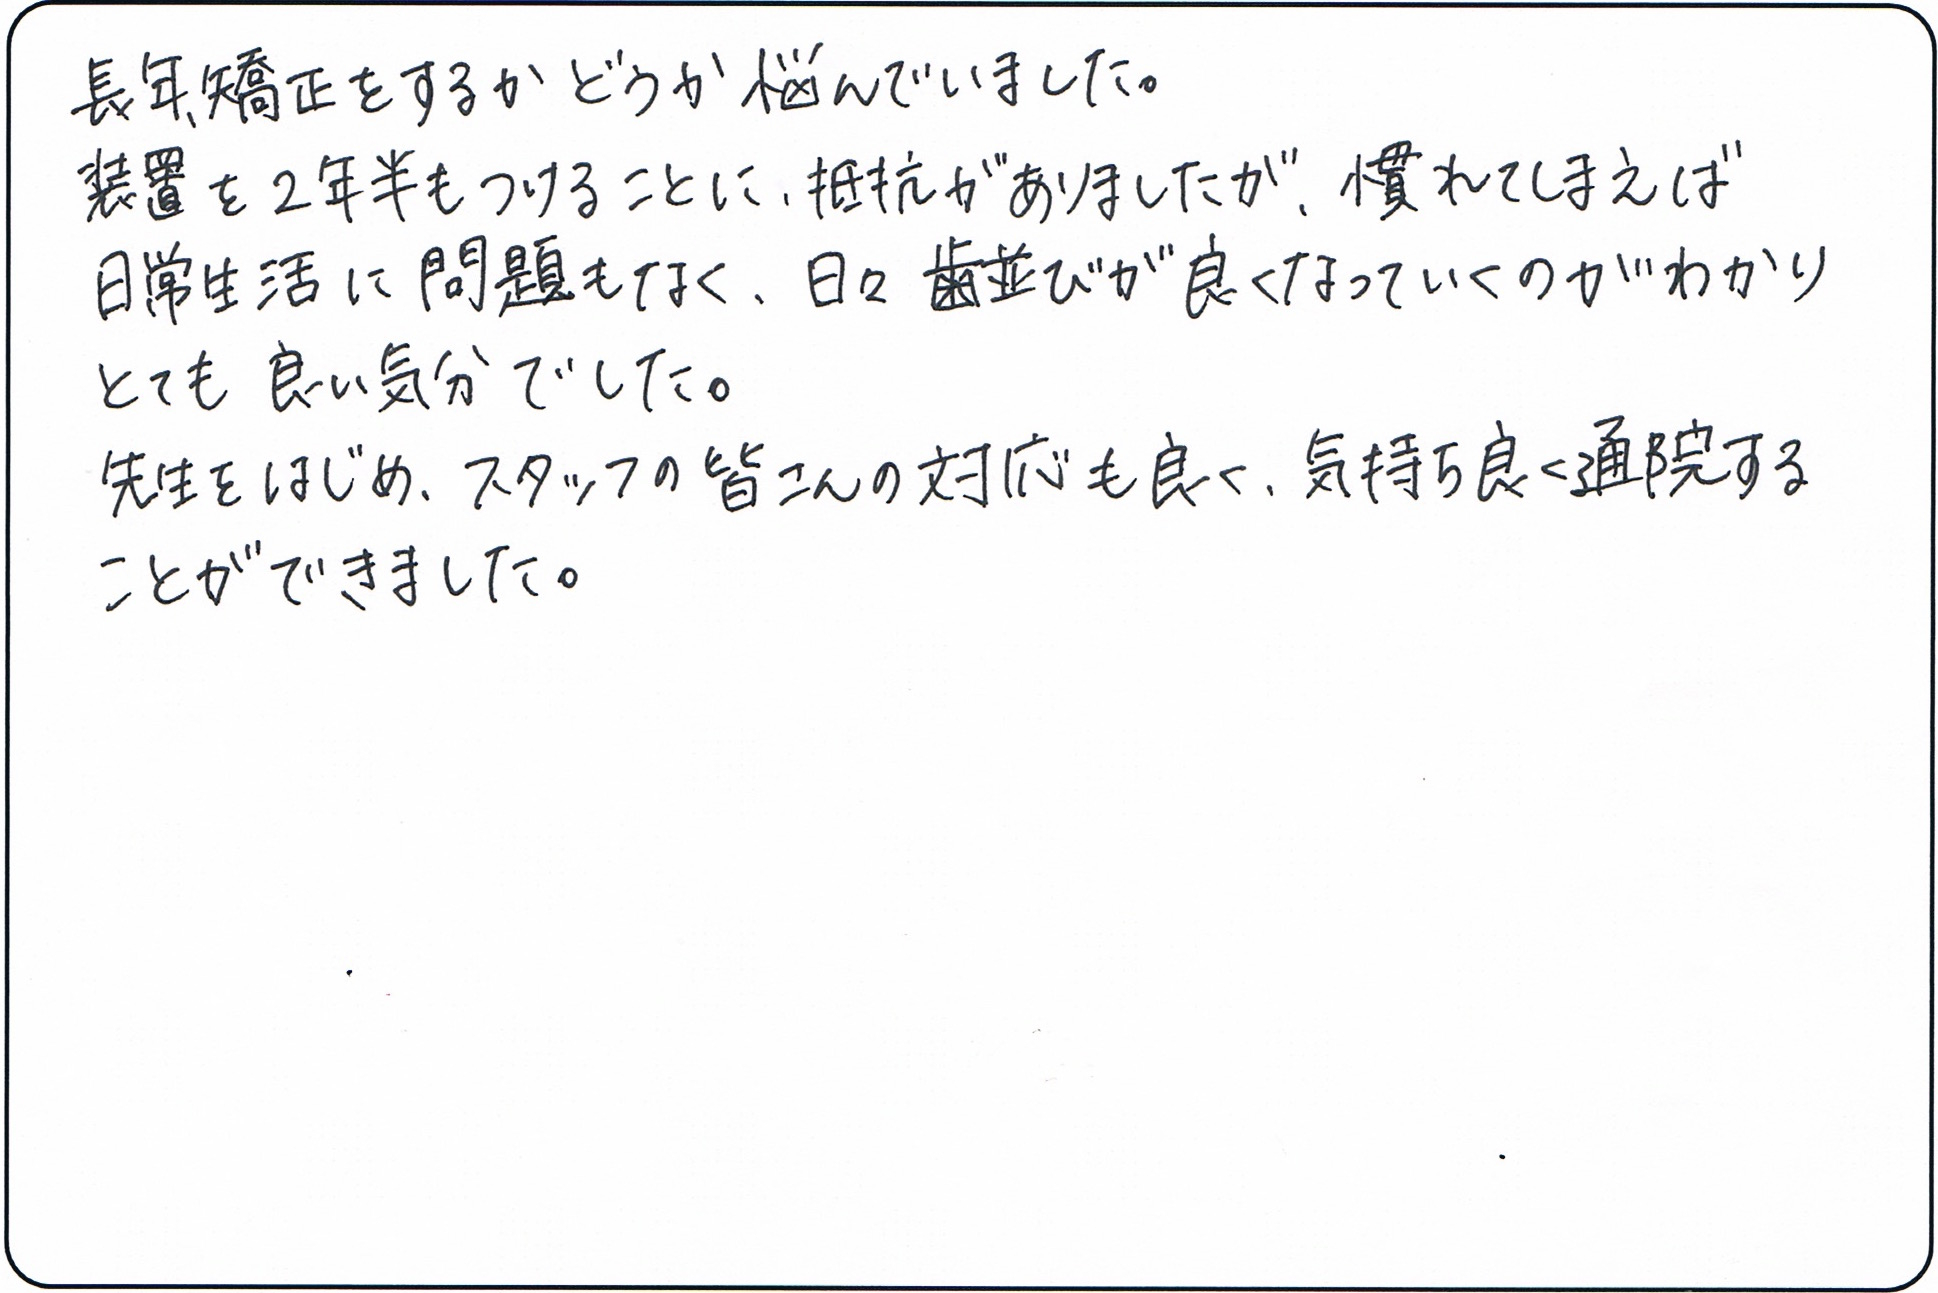 長年、矯正をするかどうか悩んでいました。
装置を2年半もつけることに、抵抗がありましたが、慣れてしまえば
日常生活に問題もなく、日々歯並びが良くなっていくのがわかり
とても良い気分でした。
先生をはじめ、スタッフの皆さんの対応も良く、気持ち良く通院する
ことができました。